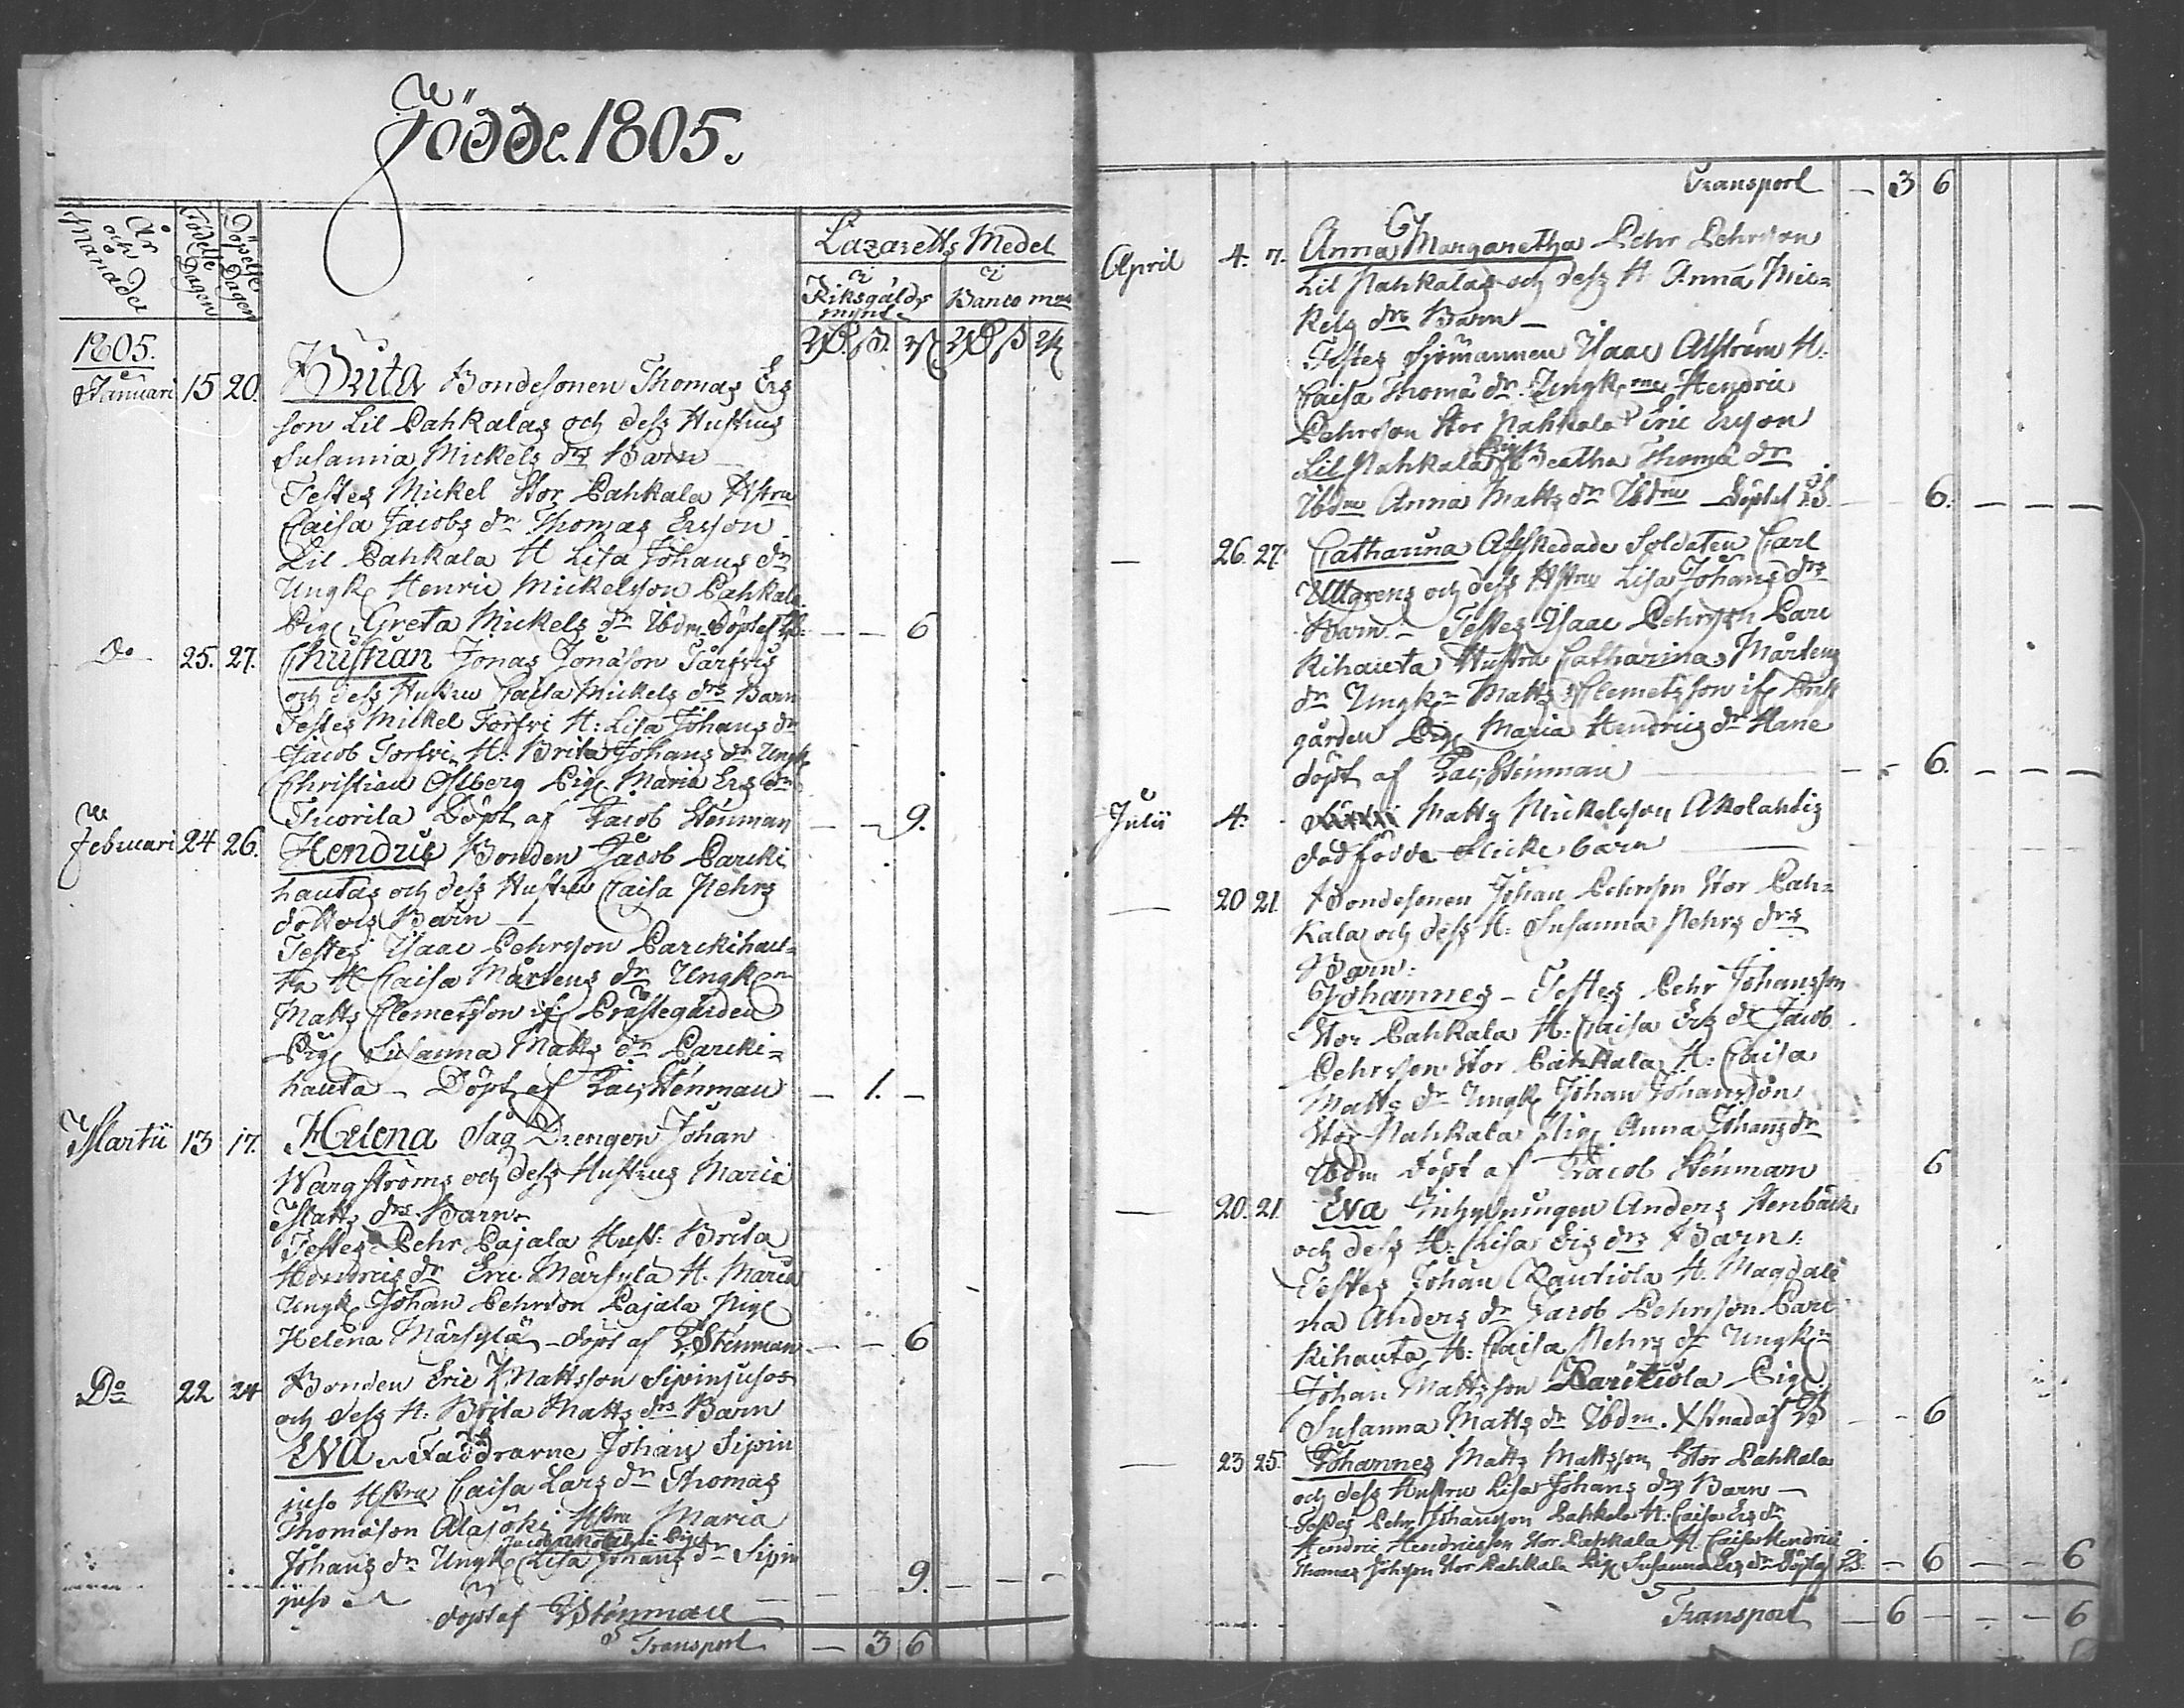 Födde 1805.
År och Månader
Födelse Dagen
Döpelse Dagen
Lazaretts Medel
i Riksgälds mynt
i Banco
1805.
Januari 15 20. Brita Bondesonen Thomas Ers
son Lil Pahkalas och dess Hustrus
Susanna Mickels drs Barn
Testes Mickel Stor Pahkala Hstru
Caisa Jacobs dr Thomas Ersson
Lil Pahkala H Lisa Johans dr
Ungk Henric Mickelsson Pahkala
Pig Greta Mickels dr Ibdm Döpt af — — 6
Do 25. 27. Christian Jonas Jonasson Törfvis
och dess Hustru Caisa Mickels drs Barn
Testes Mickel Törfvi H: Lisa Johans dr
Jacob Torfvi H: Brita Johans dr Ungk
Christian Östberg Pig Maria Ers dr
Tuorila Döpt af Jacob Stenman — — 9.
Februari 24 26. Hendric Bonden Jacob Parcki
hautas och dess Hustru Caisa Pehrs
dotters Barn
Testes Isaac Pehrsson Parckihau=
ta H Caisa Mårtens dr Ungkn
Matts Clemetsson if Prästegården
Pig Susanna Matts dr Parcki=
hauta — Döpt af Jac Stenman — 1. —
Martii 13 17. Helena Såg Drengen Johan
Wargströms och dess Hustrus Maria
Matts drs Barn
Testes Pehr Pajala Hust: Brita
Hendrics dr Eric Märsylä H. Maria
Ungk Johan Pehrson Pajala Pig
Helena Märsylä — döpt af J Stenman — — 6
Do 22 24 Bonden Eric Mattsson Sipinjusos
och dess H. Brita Matts drs Barn
Eva — Faddrarne Johan Sipin
juso Hstru Caisa Lars dr Thomas
Thomason Alajoki Hstru Maria
Johans dr Ungk Lisa Johans dr Sipin
juso — — 9. — — —
döpt af J Stenman
Transport — 3 6
Transport — 3 6
April 4. 7. Anna Margaretha Pehr Pehrsson
Lil Pahkalas och dess H Anna Mic=
kels drs Barn —
Testes Sjömannen Isaac Alström H.
Caisa Thomä dr. Ungk Hendric
Pehrsson Stor Pahkala Eric Ersson
Lil Pahkala Pig Beatha Thomä dr
Ibdm Anna Matts dr Ibdm Döpt af — 6. — — —
— 26. 27. Catharina Afskedade Soldaten Carl
Ullgrens och dess Hstru Lisa Johans drs
Barn. — Testes Isaac Pehrsson Parc
kihauta Hustru Catharina Mårtens
dr Ungkn Matts Clemetsson if Präst
gården Pig Maria Hendrics dr Hane
döpt af Jac Stenman — — 6. — — —
Julii 4. Matts Mickelsson Akolahtis
dödfödde Flicke barn
— 20 21. Bondesonen Johan Pehrsson Stor Pah=
kala och dess H: Susanna Pehrs drs
Barn:
Johannes — Testes Pehr Johansson
Stor Pahkala H: Caisa Ers dr Jacob
Pehrsson Stor Pahkala H: Caisa
Matts dr Ungk Johan Johansson
Stor Pahkala Pig Anna Johans dr
Ibdm Döpt af Jacob Stenman 6
— 20. 21. Eva Inhysningen Anders Stenbäck
och dess H: Lisa Ers drs Barn:
Testes Johan Rautiola H. Magdale
na Anders dr Jacob Pehrsson Parc
kihauta H: Caisa Pehrs dr Ungkn
Johan Mattsson Rautiola Pig
Susanna Matts dr Ibdm. — — 6
— 23 25. Johannes Matts Mattsson Stor Pahkala
och dess Hustru Lisa Johans drs Barn —
Testes Pehr Johansson Pahkala H. Caisa Ers dr
Hendric Hendricsson Stor Pahkala H. Caisa Hendrics
Thomas Johsson Stor Pahkala Pig Susanna Ers dr Döpt af — 6 — — 6
Transport — 6 — — — 6